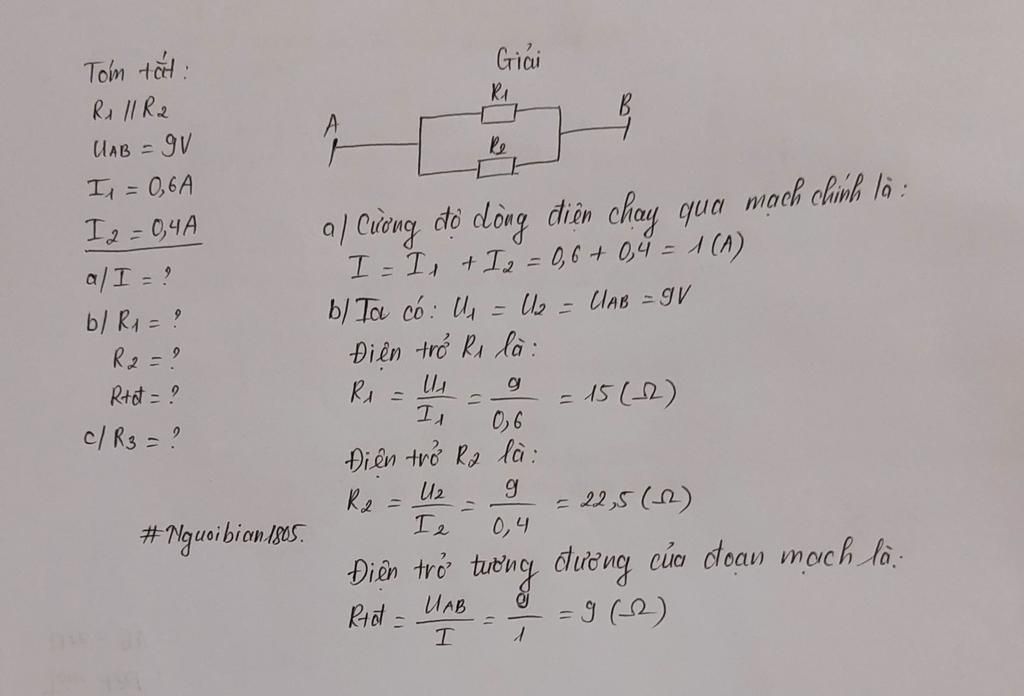 Tóm tắt:
R1 // R2
UAB = 9V
I1 = 0,6A
I2 = 0,4A
a/ I = ?
b/ R1 = ?
R2 = ?
Rtđ = ?
c/ R3 = ?
#Nguoibian1805.
Giải
A
R1
R2
B
a/ Cường độ dòng điện chạy qua mạch chính là:
I = I1 + I2 = 0,6 + 0,4 = 1 (A)
b/ Ta có: U1 = U2 = UAB = 9V
Điện trở R1 là:
R1 = U1/I1 = 9/0,6 = 15 (Ω)
Điện trở R2 là:
R2 = U2/I2 = 9/0,4 = 22,5 (Ω)
Điện trở tương đương của đoạn mạch là:
Rtđ = UAB/I = 9/1 = 9 (Ω)